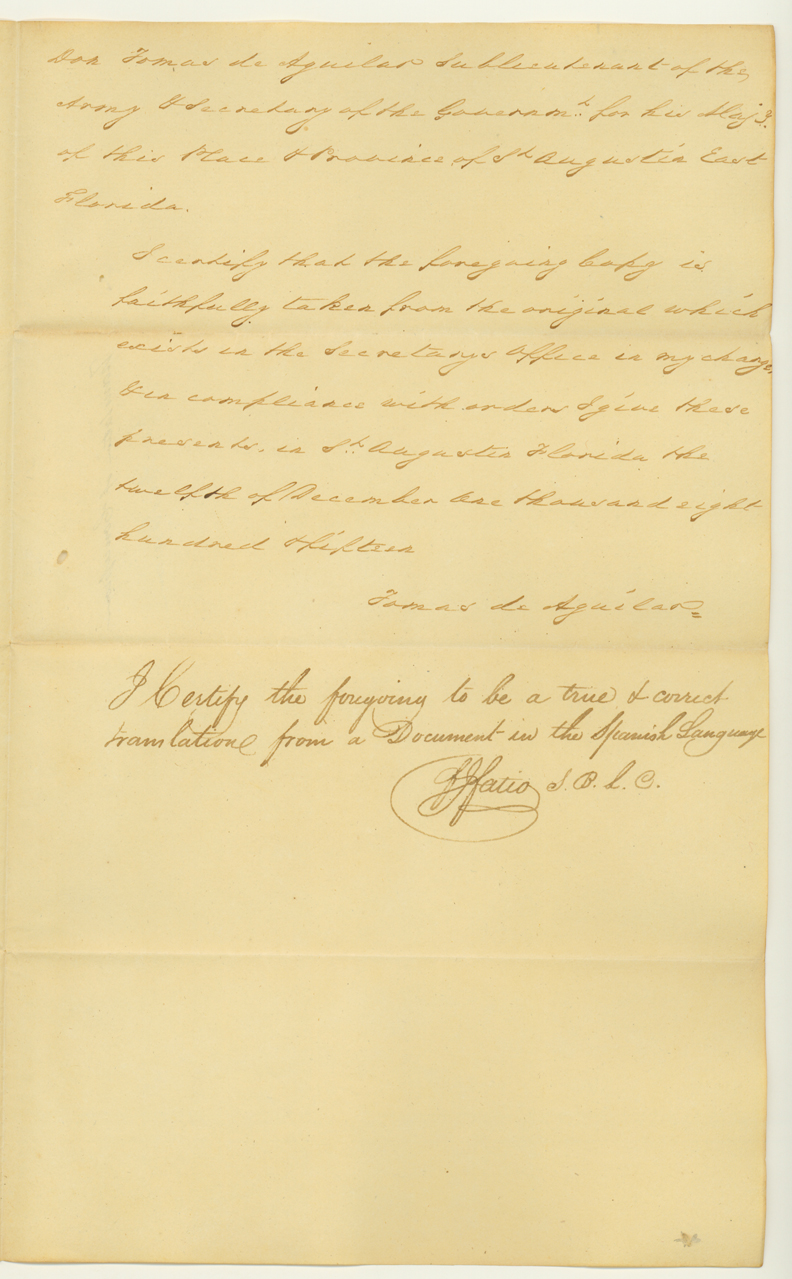 Don Tomas de Aguilar Sublieutenant of the
Army & Secretary of the Governmt. for his Maj.
of this Place & Province of St Augustin East
Florida.
I certify that the foregoing Copy is
faithfully taken from the original which
exists in the Secretarys Office in my charge,
& in compliance with orders I give these
presents, in St. Augustin Florida the
twelfth of December One thousand eight
hundred & fifteen
Tomas de Aguilar=
I Certify the foregoing to be a true & correct
translation from a Document in the Spanish Language
FJFatio S. B. L. C.